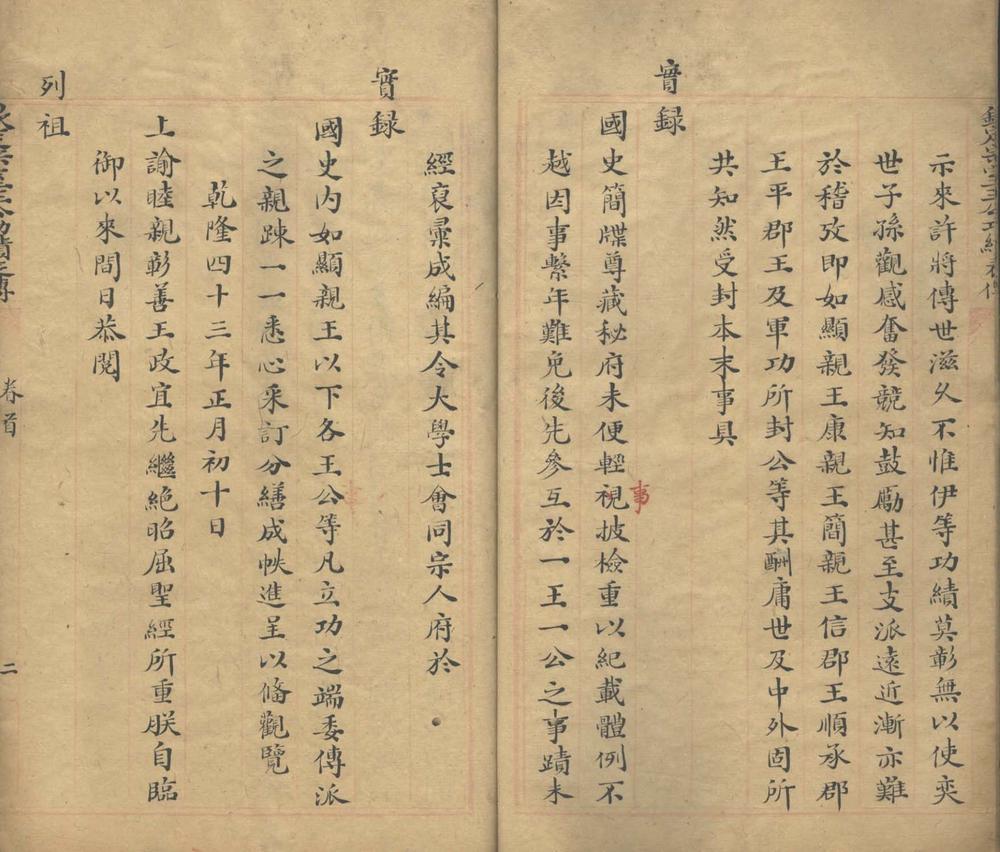 欽定宗室王公功績表傳
示來許將傳世滋久不惟伊等功績莫彰無以使奕
世子孫觀感奮發競知鼓勵甚至支派遠近漸亦難
於稽攷即如顯親王康親王簡親王信郡王順承郡
王平郡王及軍功所封公等其酬庸世及中外固所
共知然受封本末事具
實錄
事
國史簡牒尊藏秘府未便輕視披檢重以紀載體例不
越因事繫年難免後先參互於一王一公之事蹟未
經裒彚成編其令大學士會同宗人府於
實錄
國史內如顯親王以下各王公等凡立功之端委傳派
之親踈一一悉心采訂分繕成帙進呈以備觀覽
乾隆四十三年正月初十日
上諭睦親彰善王政宜先繼絕昭屈聖經所重朕自臨
御以來間日恭閱
列祖
卷首
二